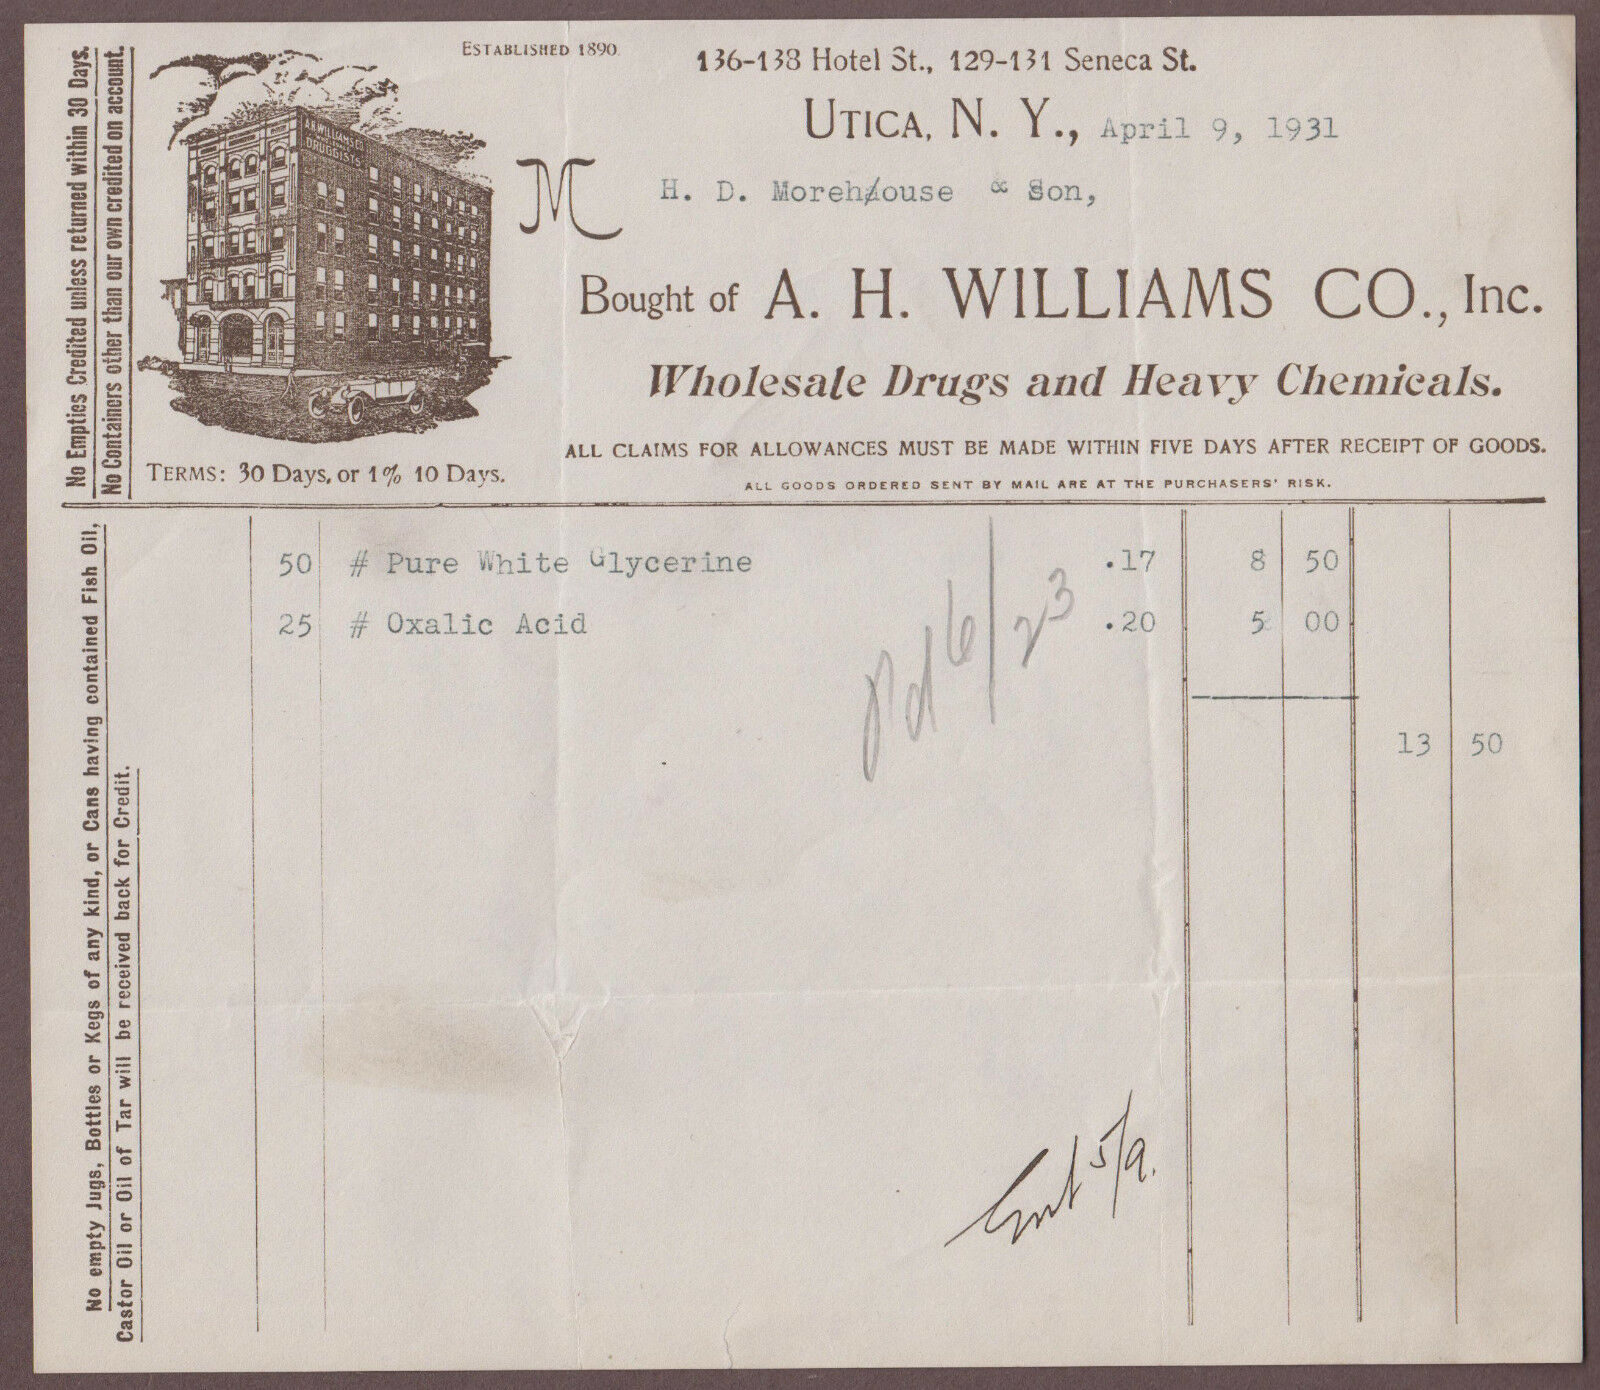 ESTABLISHED 1890
136-138 Hotel St., 129-131 Seneca St.
UTICA, N. Y., April 9, 1931
M H. D. Morehouse & Son,
A.H.WILLIAMS CO.
DRUGGISTS
Bought of A. H. WILLIAMS CO., Inc.
Wholesale Drugs and Heavy Chemicals.
ALL CLAIMS FOR ALLOWANCES MUST BE MADE WITHIN FIVE DAYS AFTER RECEIPT OF GOODS.
TERMS: 30 Days, or 1% 10 Days.
ALL GOODS ORDERED SENT BY MAIL ARE AT THE PURCHASERS' RISK.
No Empties Credited unless returned within 30 Days.
No Containers other than our own credited on account.
50 # Pure White Glycerine .17 8 50
25 # Oxalic Acid .20 5 00
Pd 6/23
13 50
Ent 5/9.
No empty Jugs, Bottles or Kegs of any kind, or Cans having contained Fish Oil,
Castor Oil or Oil of Tar will be received back for Credit.